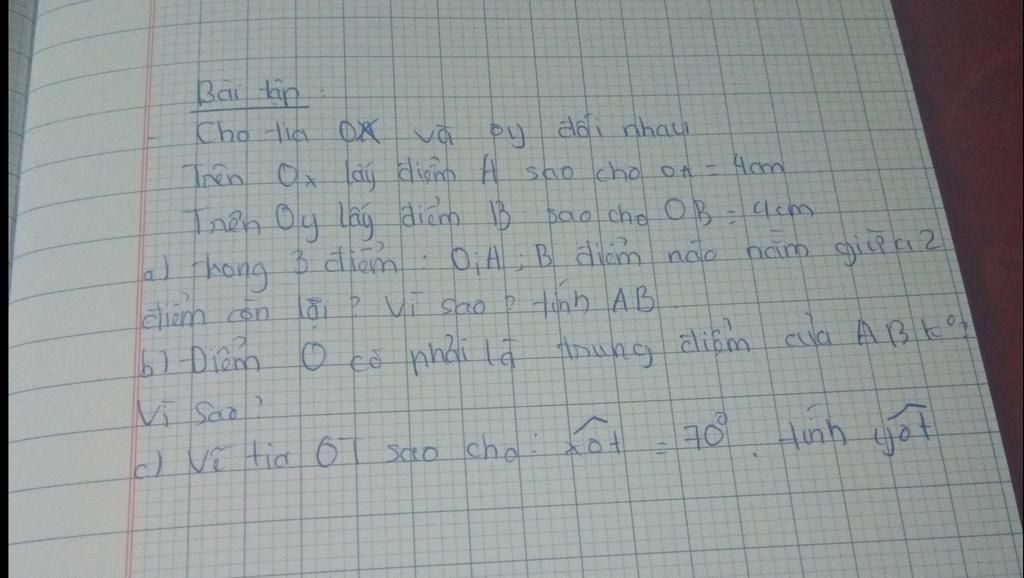 Bài tập :
- Cho tia Ox và Oy đối nhau
Trên Ox lấy điểm A sao cho OA = 4cm
Trên Oy lấy điểm B sao cho OB = 4cm
a) Trong 3 điểm : O; A; B điểm nào nằm giữa 2
điểm còn lại ? Vì sao ? tính AB
b) Điểm O có phải là trung điểm của AB k0?
Vì sao?
c) Vẽ tia OT sao cho : xOt = 70°. tính yOt